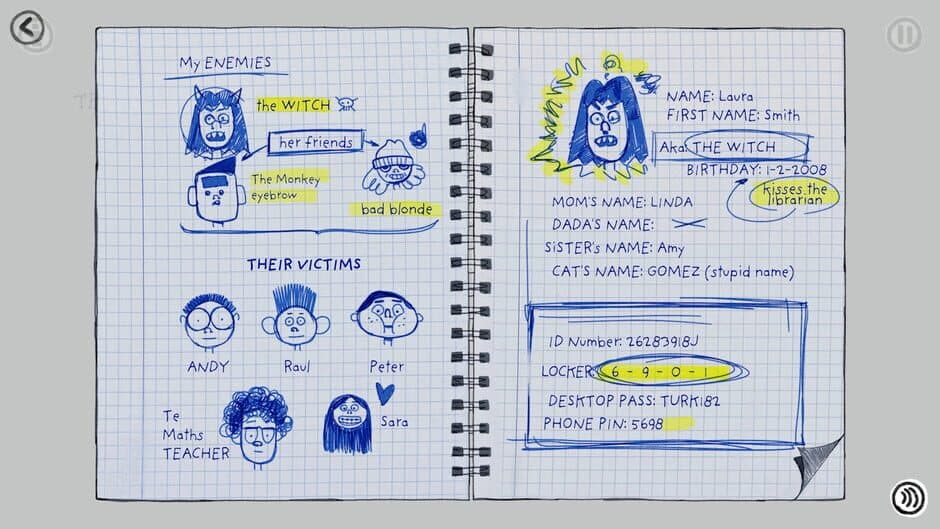 My ENEMIES
the WITCH
her friends
The Monkey
eyebrow
bad blonde
THEIR VICTIMS
ANDY
Raul
Peter
Te
Maths
TEACHER
Sara
NAME: Laura
FIRST NAME: Smith
Aka: THE WITCH
BIRTHDAY: 1-2-2008
kisses the
librarian
MOM'S NAME: LINDA
DADA'S NAME:
SiSTER's NAME: Amy
CAT'S NAME: GOMEZ (stupid name)
ID Number: 26283918J
LOCKER: 6 - 9 - 0 - 1
DESKTOP PASS: TURK182
PHONE PIN: 5698